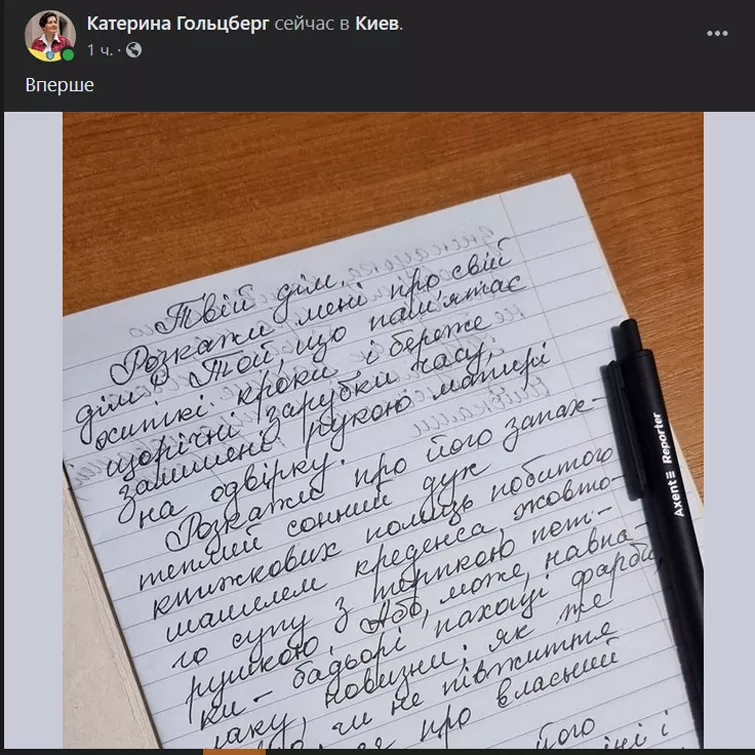 Катерина Гольцберг сейчас в Киев.
1 ч. ·
Вперше
Твій дім.
Розкажи мені про свій
дім? Той, що пам'ятає
хиткі кроки і береже
щорічні зарубки часу,
залишені рукою матері
на одвірку.
Розкажи про його запах –
теплий сонний дух
книжкових полиць, побитого
шашелем креденса, жовто-
го супу з терпкою пет-
рушкою. Або, може, навпа-
ки – бадьорі пахощі фарби,
лаку, новизни, як же
чи не півжиття
про власний
його
і
Axent Reporter